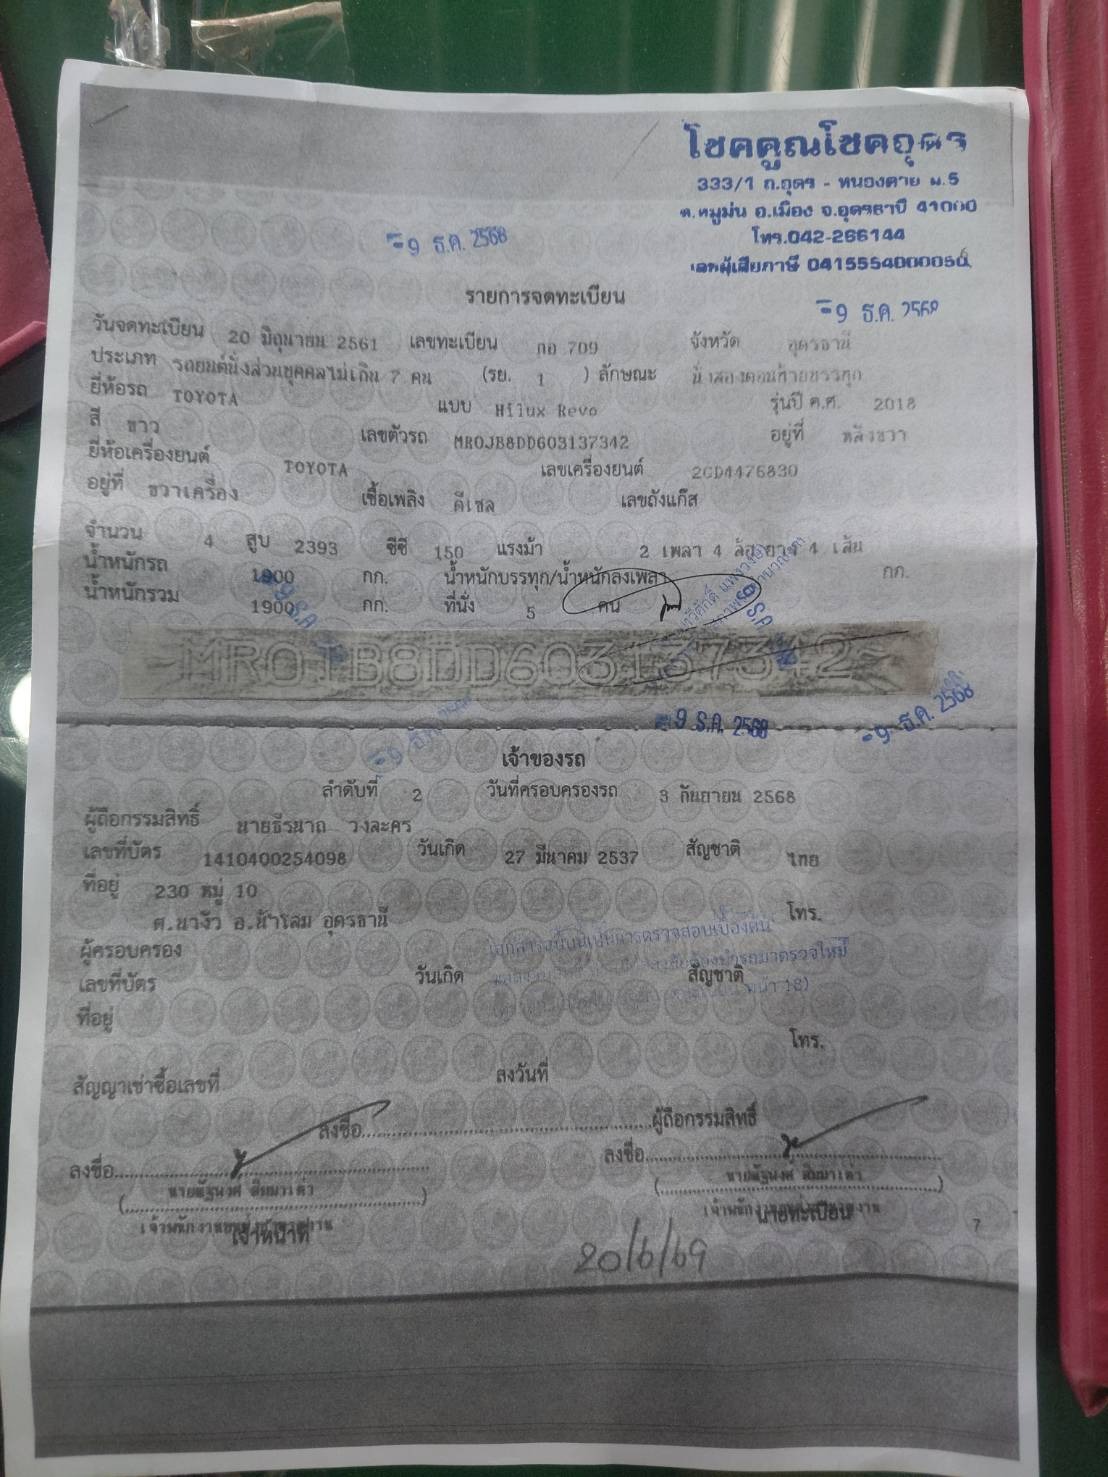 โชคคูณโชคอุดร
333/1 ถ.อุดร - หนองตาย ม.5
ต.หมูม่น อ.เมือง จ.อุดรธานี 41000
โทร.042-266144
เลขผู้เสียภาษี 0415554000050
-9 ธ.ค. 2568
รายการจดทะเบียน
-9 ธ.ค. 2568
วันจดทะเบียน 20 มิถุนายน 2561 เลขทะเบียน กอ 709 จังหวัด อุดรธานี
ประเภท รถยนต์นั่งส่วนบุคคลไม่เกิน 7 คน (รย. 1 ) ลักษณะ นั่งสองตอนท้ายบรรทุก
ยี่ห้อรถ TOYOTA แบบ Hilux Revo รุ่นปี ค.ศ. 2018
สี ขาว เลขตัวรถ MR0JB8DD603137342 อยู่ที่ หลังขวา
ยี่ห้อเครื่องยนต์ TOYOTA เลขเครื่องยนต์ 2GD4476830
อยู่ที่ ขวาเครื่อง เชื้อเพลิง ดีเซล เลขถังแก๊ส
จำนวน 4 สูบ 2393 ซีซี 150 แรงม้า 2 เพลา 4 ล้อ ยาง 4 เส้น
น้ำหนักรถ 1900 กก. น้ำหนักบรรทุก/น้ำหนักลงเพลา กก.
น้ำหนักรวม 1900 กก. ที่นั่ง 5 คน
MR0JB8DD603137342
-9 ธ.ค. 2568
-9 ธ.ค. 2568
เจ้าของรถ
ลำดับที่ 2 วันที่ครอบครองรถ 3 กันยายน 2568
ผู้ถือกรรมสิทธิ์ นายธีรนาถ วงละคร
เลขที่บัตร 1410400254098 วันเกิด 27 มีนาคม 2537 สัญชาติ ไทย
ที่อยู่ 230 หมู่ 10
ต.นางัว อ.น้ำโสม อุดรธานี โทร.
ผู้ครอบครอง
เลขที่บัตร วันเกิด สัญชาติ
ที่อยู่
โทร.
สัญญาเช่าซื้อเลขที่ ลงวันที่
ลงชื่อ ผู้ถือกรรมสิทธิ์
ลงชื่อ ลงชื่อ
เจ้าหน้าที่ นายทะเบียน
7
20/6/69